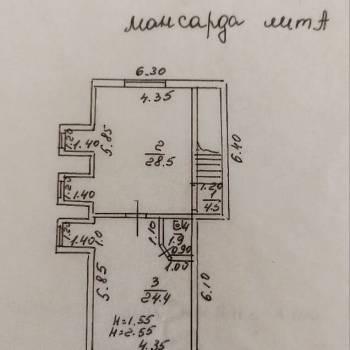 мансарда литА
6.30
4.35
1.20
1.40
5.85
2
28.5
6.40
1.20
1.40
1.20
1
4.5
1.20
1.40
1.0
1.10
4
1.9
0.90
1.00
5.85
3
24.4
6.10
H=1.55
H=2.55
4.35